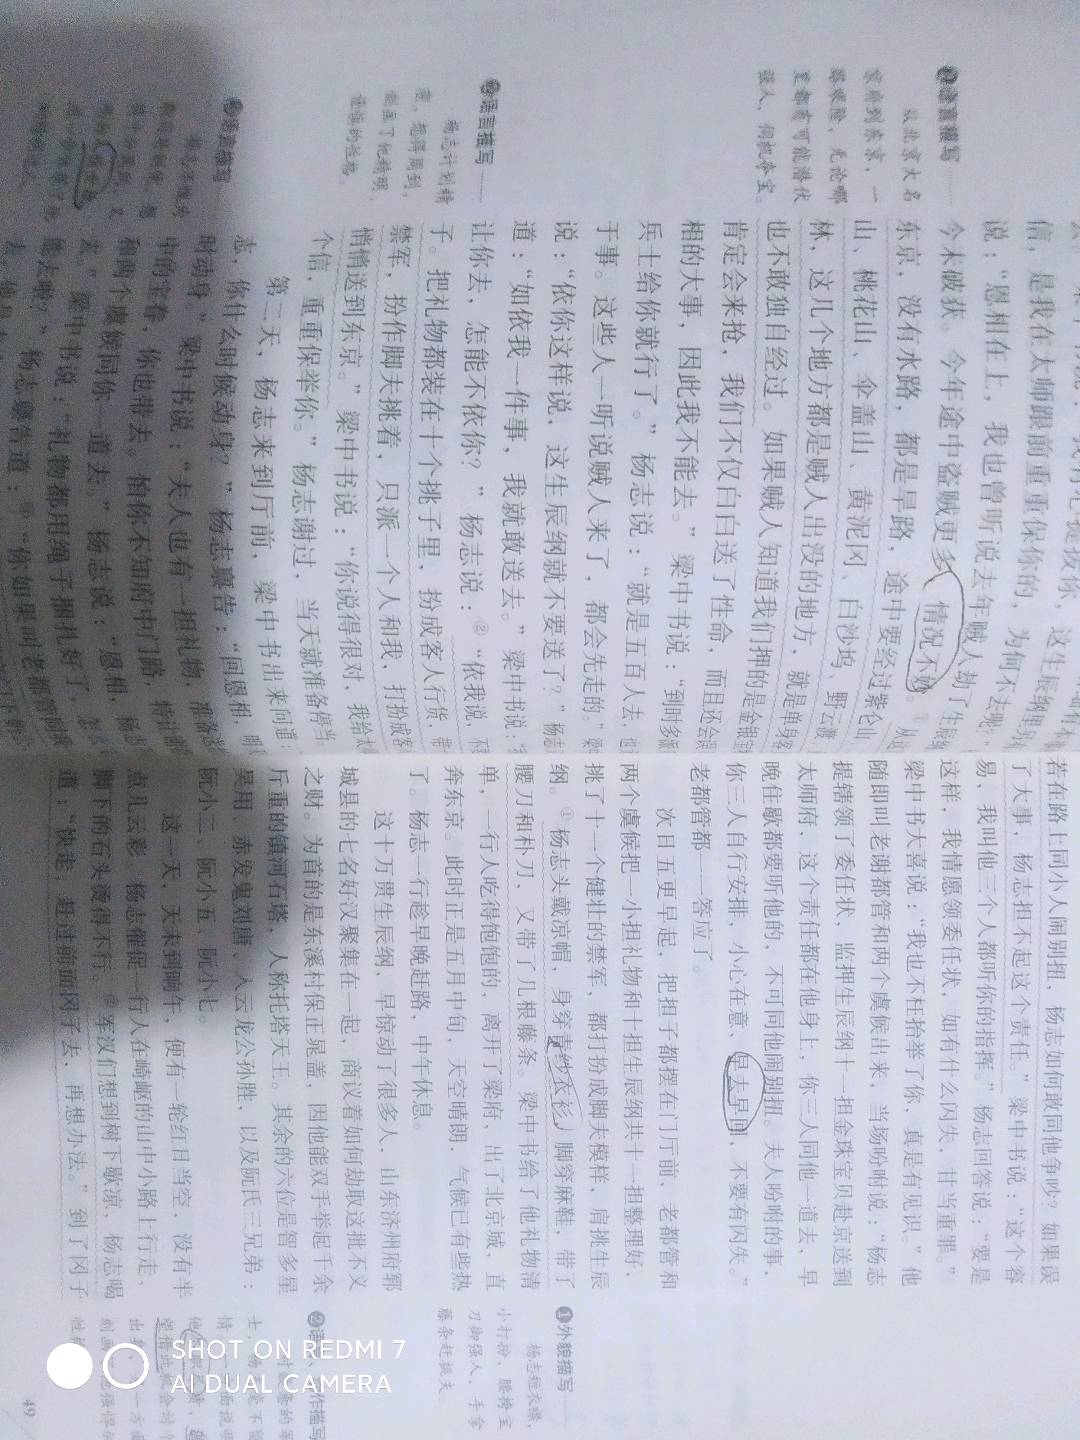 ❶语言描写
从北京大名
强人，伺机夺宝。
❷语言描写
杨志计划精
密，想得周到，
❸语言描写
信，是我在太师跟前重重保你的，为何不去呢？”
说：“恩相在上，我也曾听说去年贼人劫了生辰
今未破获。今年途中盗贼更多，情况不妙。①从这
东京，没有水路，都是旱路，途中要经过紫仑山
山、桃花山、伞盖山、黄泥冈、白沙坞、野云渡
林，这几个地方都是贼人出没的地方，就是单身客
也不敢独自经过。如果贼人知道我们押的是金银宝
肯定会来抢，我们不仅白白送了性命，而且还会误
相的大事，因此我不能去。”梁中书说：“到时多派
兵士给你就行了。”杨志说：“就是五百人去，也
于事。这些人一听说贼人来了，都会先走的。”梁
说：“依你这样说，这生辰纲就不要送了？”杨志
道：“如依我一件事，我就敢送去。”梁中书说：
让你去，怎能不依你？”杨志说：②“依我说，不
子。把礼物都装在十个挑子里，扮成客人行货，带
禁军，扮作脚夫挑着，只派一个人和我，打扮成客
悄悄送到东京。”梁中书说：“你说得很对，我给
个信，重重保举你。”杨志谢过，当天就准备停当
第二天，杨志来到厅前，梁中书出来问道：
志，你什么时候动身？”杨志禀告：“回恩相，明
时动身。”梁中书说：“夫人也有一担礼物，
中的宝眷，你也带去。怕你不知府中门路，特
和两个虞候同你一道去。”杨志说：“恩相，杨
去。”梁中书说：“礼物都用绳子捆扎好了，怎
能去啦？”
杨志禀告道：③“你如果叫老都管同
若在路上同小人闹别扭，杨志如何敢同他争吵？如果误
了大事，杨志担不起这个责任。”梁中书说：“这个容
易，我叫他三个人都听你的指挥。”杨志回答说：“要是
这样，我情愿领委任状，如有什么闪失，甘当重罪。”
梁中书大喜说：“我也不枉抬举了你，真是有见识。”他
随即叫老谢都管和两个虞候出来，当场吩咐说：“杨志
提辖领了委任状，监押生辰纲十一担金珠宝贝赴京送到
太师府，这个责任都在他身上，你三人同他一道去，早
晚住歇都要听他的，不可同他闹别扭。夫人吩咐的事，
你三人自行安排，小心在意，早去早回，不要有闪失。”
老都管都一一答应了。
次日五更早起，把担子都摆在门厅前，老都管和
两个虞候把一小担礼物和十担生辰纲共十一担整理好，
挑了十一个健壮的禁军，都打扮成脚夫模样，肩挑生辰
纲。①杨志头戴凉帽，身穿青纱衣衫，脚穿麻鞋，带了
腰刀和朴刀，又带了几根藤条。梁中书给了他礼物清
单，一行人吃得饱饱的，离开了梁府，出了北京城，直
奔东京。此时正是五月中旬，天空晴朗，气候已有些热
了。杨志一行趁早晚赶路，中午休息。
这十万贯生辰纲，早惊动了很多人，山东济州府郓
城县的七名好汉聚集在一起，商议着如何劫取这批不义
之财。为首的是东溪村保正晁盖，因他能双手举起千余
斤重的镇河石塔，人称托塔天王。其余的六位是智多星
吴用、赤发鬼刘唐、入云龙公孙胜，以及阮氏三兄弟：
阮小二、阮小五、阮小七。
这一天，天未到晌午，便有一轮红日当空，没有半
点儿云彩，杨志催促一行人在崎岖的山中小路上行走，
脚下的石头烫得不行。②军汉们想到树下歇凉，杨志喝
道：“快走，赶过前面冈子去，再想办法。”到了冈子
❶外貌描写
小打扮，腰挎宝
刀御强人，手拿
藤条赶挑夫
49
SHOT ON REDMI 7
AI DUAL CAMERA